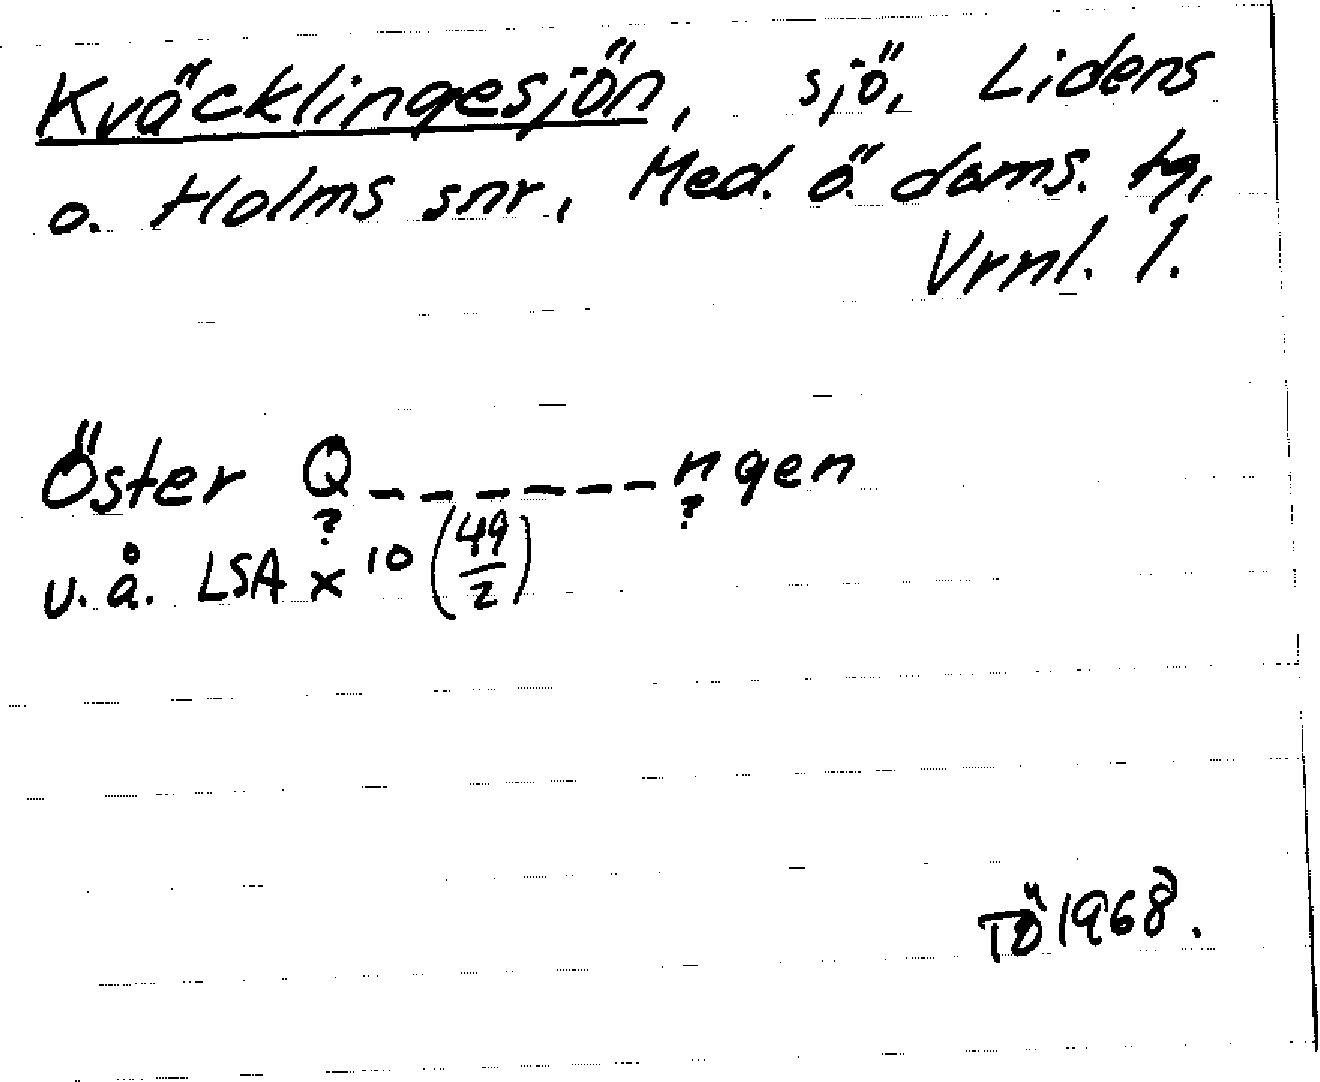 Kväcklingesjön, sjö, Lidens
o. Holms snr, Med. ö. doms. tg,
Vrnl. l.
Öster Q_ _ _ _ _ _ngen
? ?
u. å. LSA x 10 (49/2)
TÖ 1968.